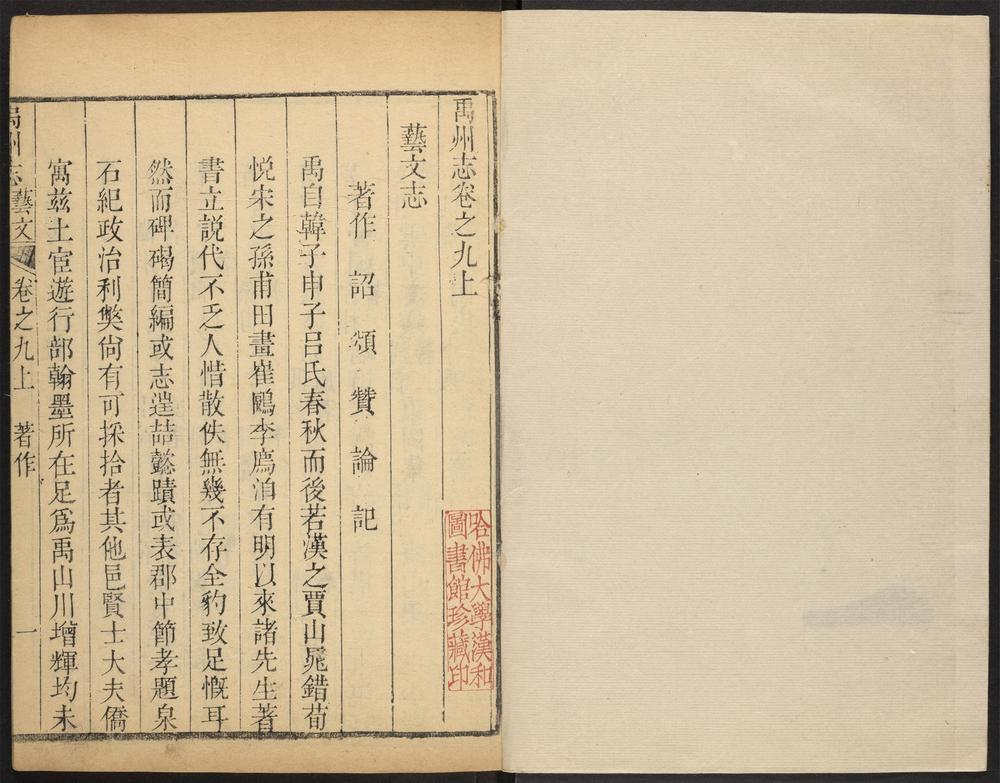 禹州志卷之九上
藝文志
著作 詔 頌 贊 論 記
禹自韓子申子呂氏春秋而後若漢之賈山鼂錯荀
悅宋之孫甫田晝崔鷗李廌洎有明以來諸先生著
書立說代不乏人惜散佚無幾不存全豹致足慨耳
然而碑碣簡編或志逞喆懿蹟或表郡中節孝題泉
石紀政治利獘尚有可採拾者其他邑賢士大夫僑
寓茲土宦遊行部翰墨所在足爲禹山川增輝均未
禹州志藝文 卷之九上 著作 一
哈佛大學漢和
圖書館珍藏印